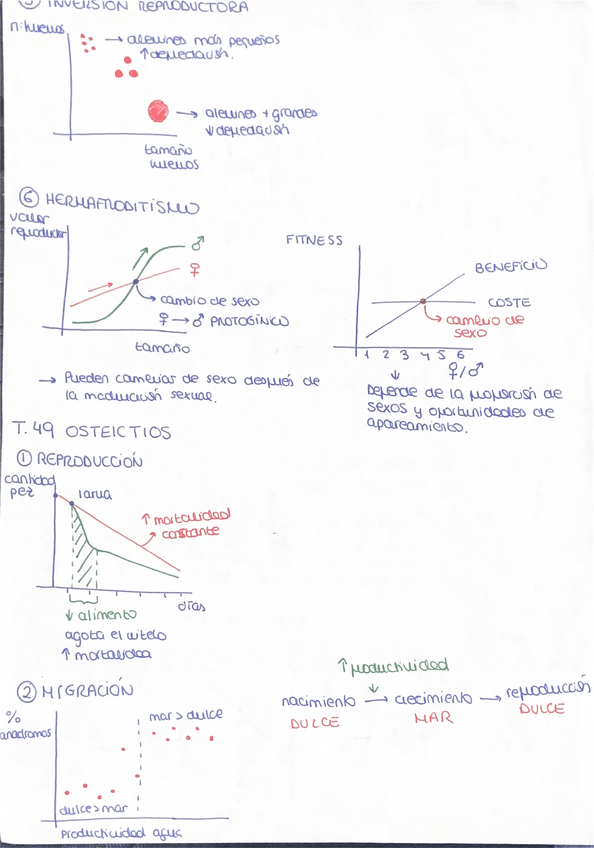 ⑤ INVERSIÓN REPRODUCTORA
n: huevos
→ alevines más pequeños
↑ depredación.
→ alevines + grandes
↓ depredación
tamaño
huevos
⑥ HERMAFRODITISMO
valor
reproductor
♂
♀
cambio de sexo
♀ → ♂ PROTOGÍNICO
tamaño
FITNESS
BENEFICIO
COSTE
cambio de
sexo
1 2 3 4 5 6
♀/♂
Depende de la proporción de
sexos y oportunidades de
apareamiento.
→ Pueden cambiar de sexo después de
la maduración sexual.
T.49 OSTEICTIOS
① REPRODUCCIÓN
cantidad
pez
larva
↑ mortalidad
constante
días
↓ alimento
agota el vitelo
↑ mortalidad
② MIGRACIÓN
%
anadromos
mar > dulce
dulce > mar
Productividad agua
↑ productividad
nacimiento → crecimiento → reproducción
DULCE MAR DULCE